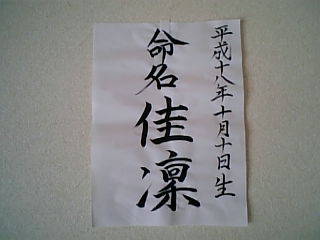 平成十八年十月十日生
命名 佳凛